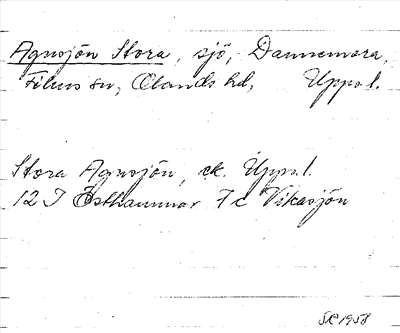 Agnsjön Stora, sjö, Dannemora,
Films sn, Olands hd, Upps.l.
Stora Agnsjön, ek. Upps.l.
12 I Östhammar 7c Vikasjön
1958